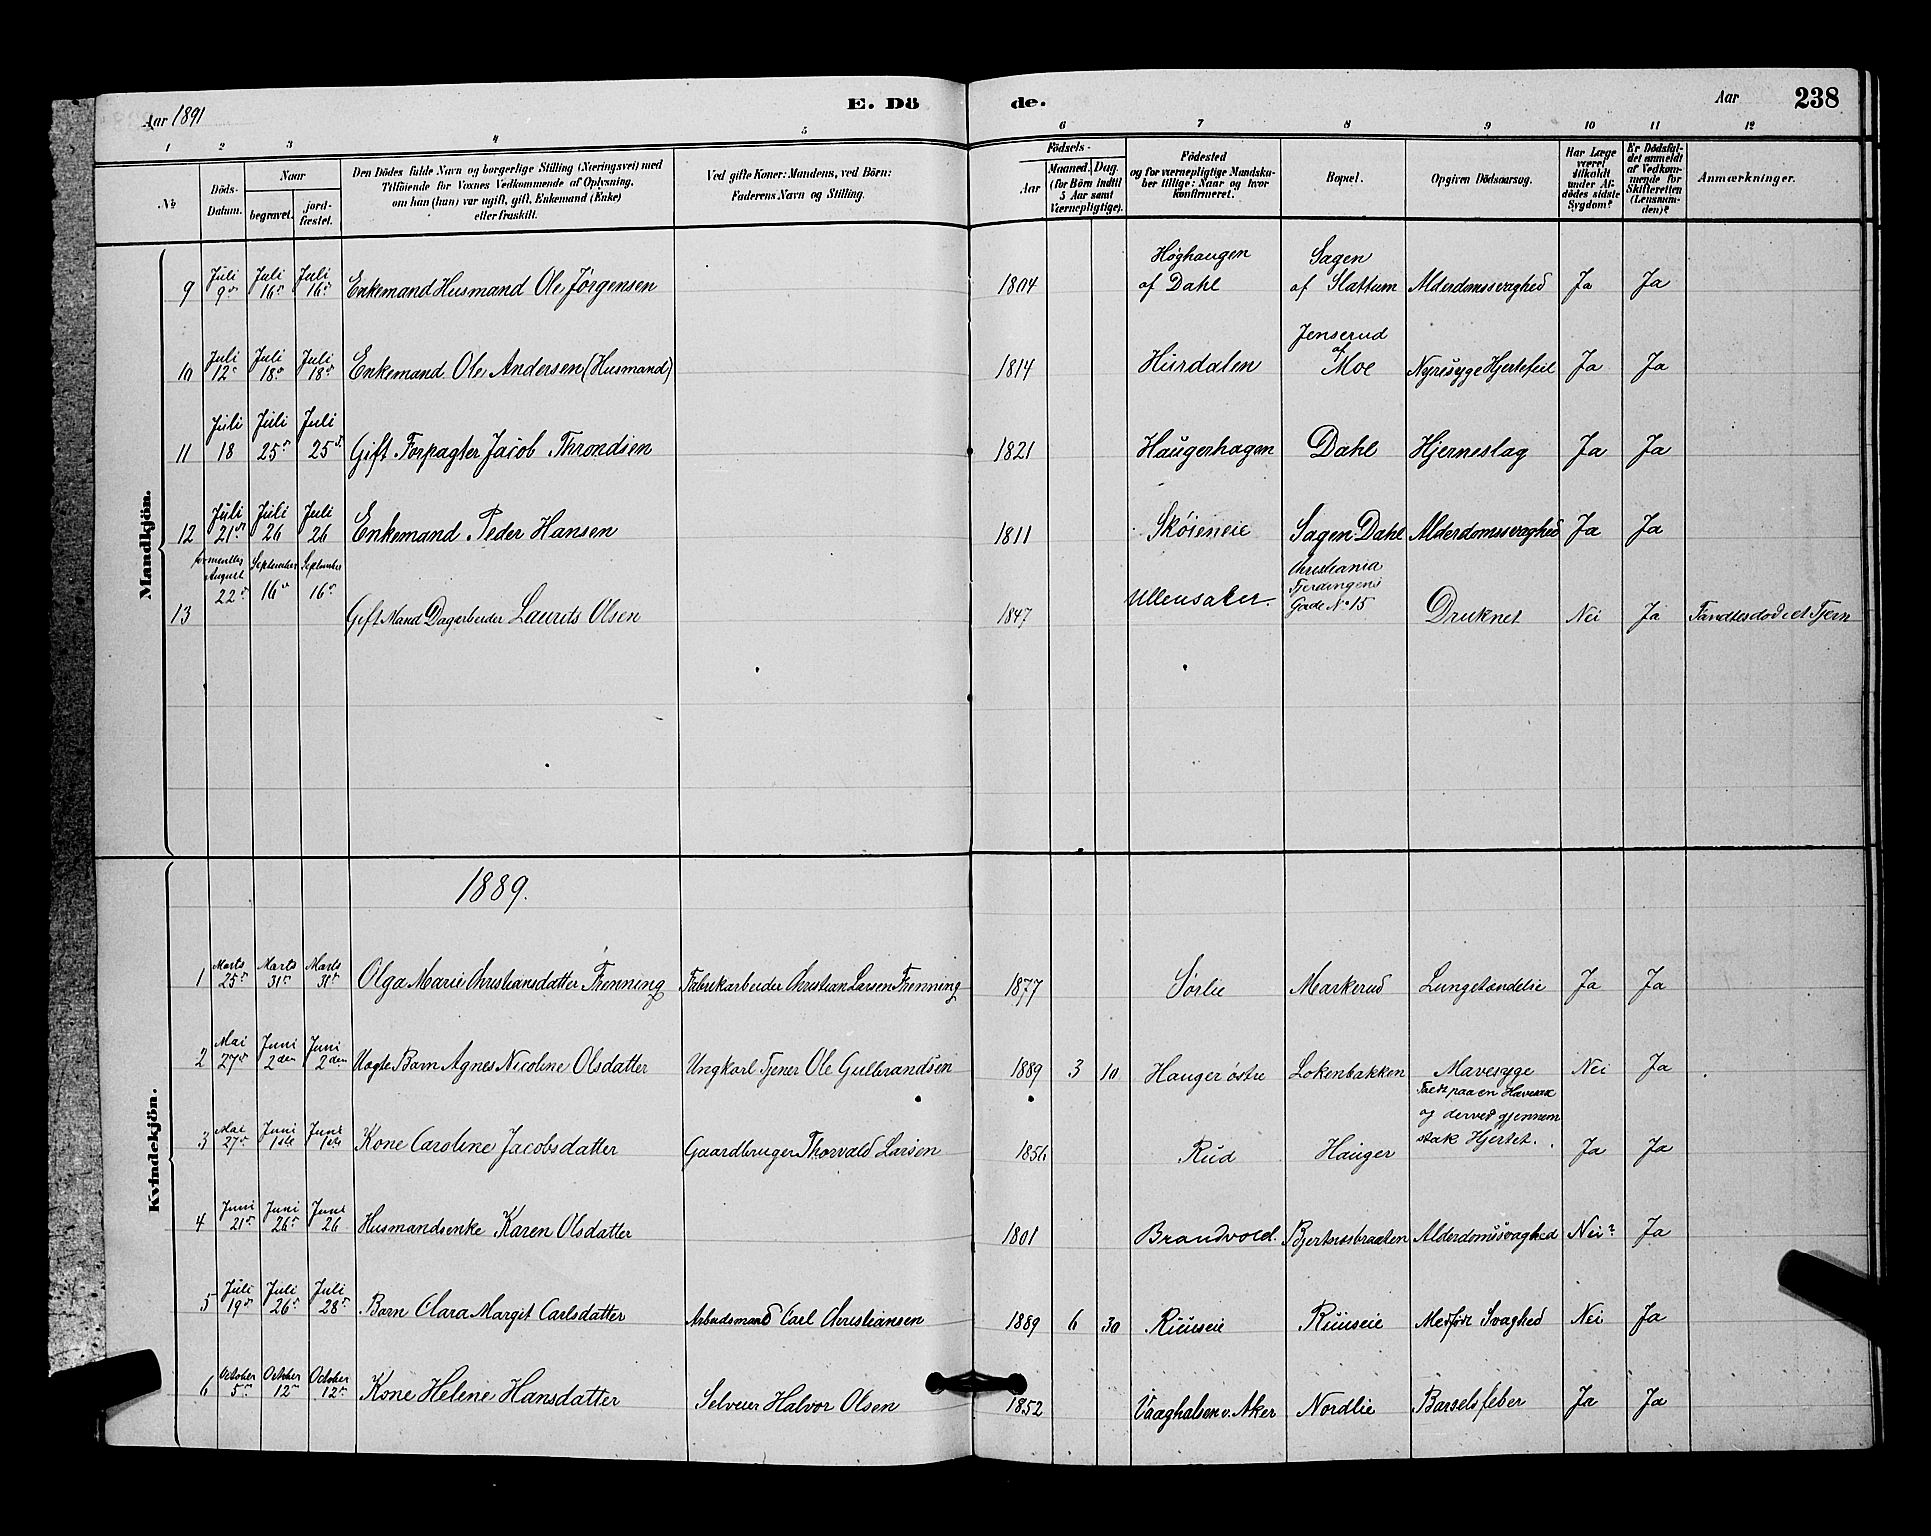 Aar 1891 E. Dö de. Aar 238
1 2 3 4 5 6 7 8 9 10 11 12
No
Döds-Datum.
Naar
begravet.
jord-fæstet.
Den Dödes fulde Navn og borgerlige Stilling (Næringsvei) med
Tilföiende for Voxnes Vedkommende af Oplysning,
om han (hun) var ugift, gift, Enkemand (Enke)
eller fraskilt.
Ved gifte Koner: Mandens, ved Börn:
Faderens Navn og Stilling.
Födsels-
Aar
Maaned. Dag.
(for Börn indtil
5 Aar samt
Værnepligtige).
Födested
og for værnepligtige Mandska-
ber tillige: Naar og hvor
konfirmeret.
Bopæl.
Opgiven Dödsaarsag.
Har Læge
været
tilkaldt
under Af-
dödes sidste
Sygdom?
Er Dödsfal-
det anmeldt
af Vedkom-
mende for
Skifteretten
(Lensman-
den)?
Anmærkninger.
Mandkjön.
Høghaugen Sagen
9 Juli 9de Juli 16de Juli 16de Enkemand Husmand Ole Jørgensen 1804 af Dahl af Slattum Alderdomssvaghed Ja Ja
Jenserud
10 Juli 12te Juli 18de Juli 18de Enkemand Ole Andersen (Husmand) 1814 Hurdalen af Moe Nyresyge Hjertefeil Ja Ja
11 Juli 18 Juli 25de Juli 25de Gift Forpagter Jacob Throndsen 1821 Haugerhagen Dahl Hjerneslag Ja Ja
12 Juli 21de Juli 26 Juli 26 Enkemand Peder Hansen 1811 Skøieneie Sagen Dahl Alderdomssvaghed Ja Ja
August 22de September 16de September 16de Christiania
Gade No 15
13 Gift Mand Dagarbeider Laurits Olsen 1847 Ullensaker. Druknet Nei Ja Fandtes død i et Tjern
Kvindekjön.
1889.
1 Marts 25de Marts 31te Marts 31te Olga Marie Christiansdatter Frenning Fabrikarbeider Christian Larsen Frenning 1877 Sørlie Markerud Lungetændelse Ja Ja
2 Mai 27de Juni 2den Juni 2den Uægte Barn Agnes Nicoline Olsdatter Ungkarl Tjener Ole Gulbrandsen 1889 3 10 Hauger østre Lokenbakken Mavesyge Nei Ja
Faldt paa en
og derved gjennem
stak Hjertet.
3 Mai 27de Juni 1ste Juni 1ste Kone Caroline Jacobsdatter Gaardbruger Thorvald Larsen 1856 Rud Hauger Ja Ja
4 Juni 21de Juni 26de Juni 26 Husmandsenke Karen Olsdatter 1801 Brandvold. Bjertnæsbraaten Alderdomssvaghed Nei? Ja
5 Juli 19de Juli 26de Juli 28de Barn Clara Margit Carlsdatter Arbeidsmand Carl Christiansen 1889 6 30 Ruuseie Ruuseie Medfødt Svaghed Nei Ja
6 October 5te October 12te October 12te Kone Helene Hansdatter Selveier Halvor Olsen 1852 Vaaghalsen v. Aker Nordlie Barselsfeber Ja Ja